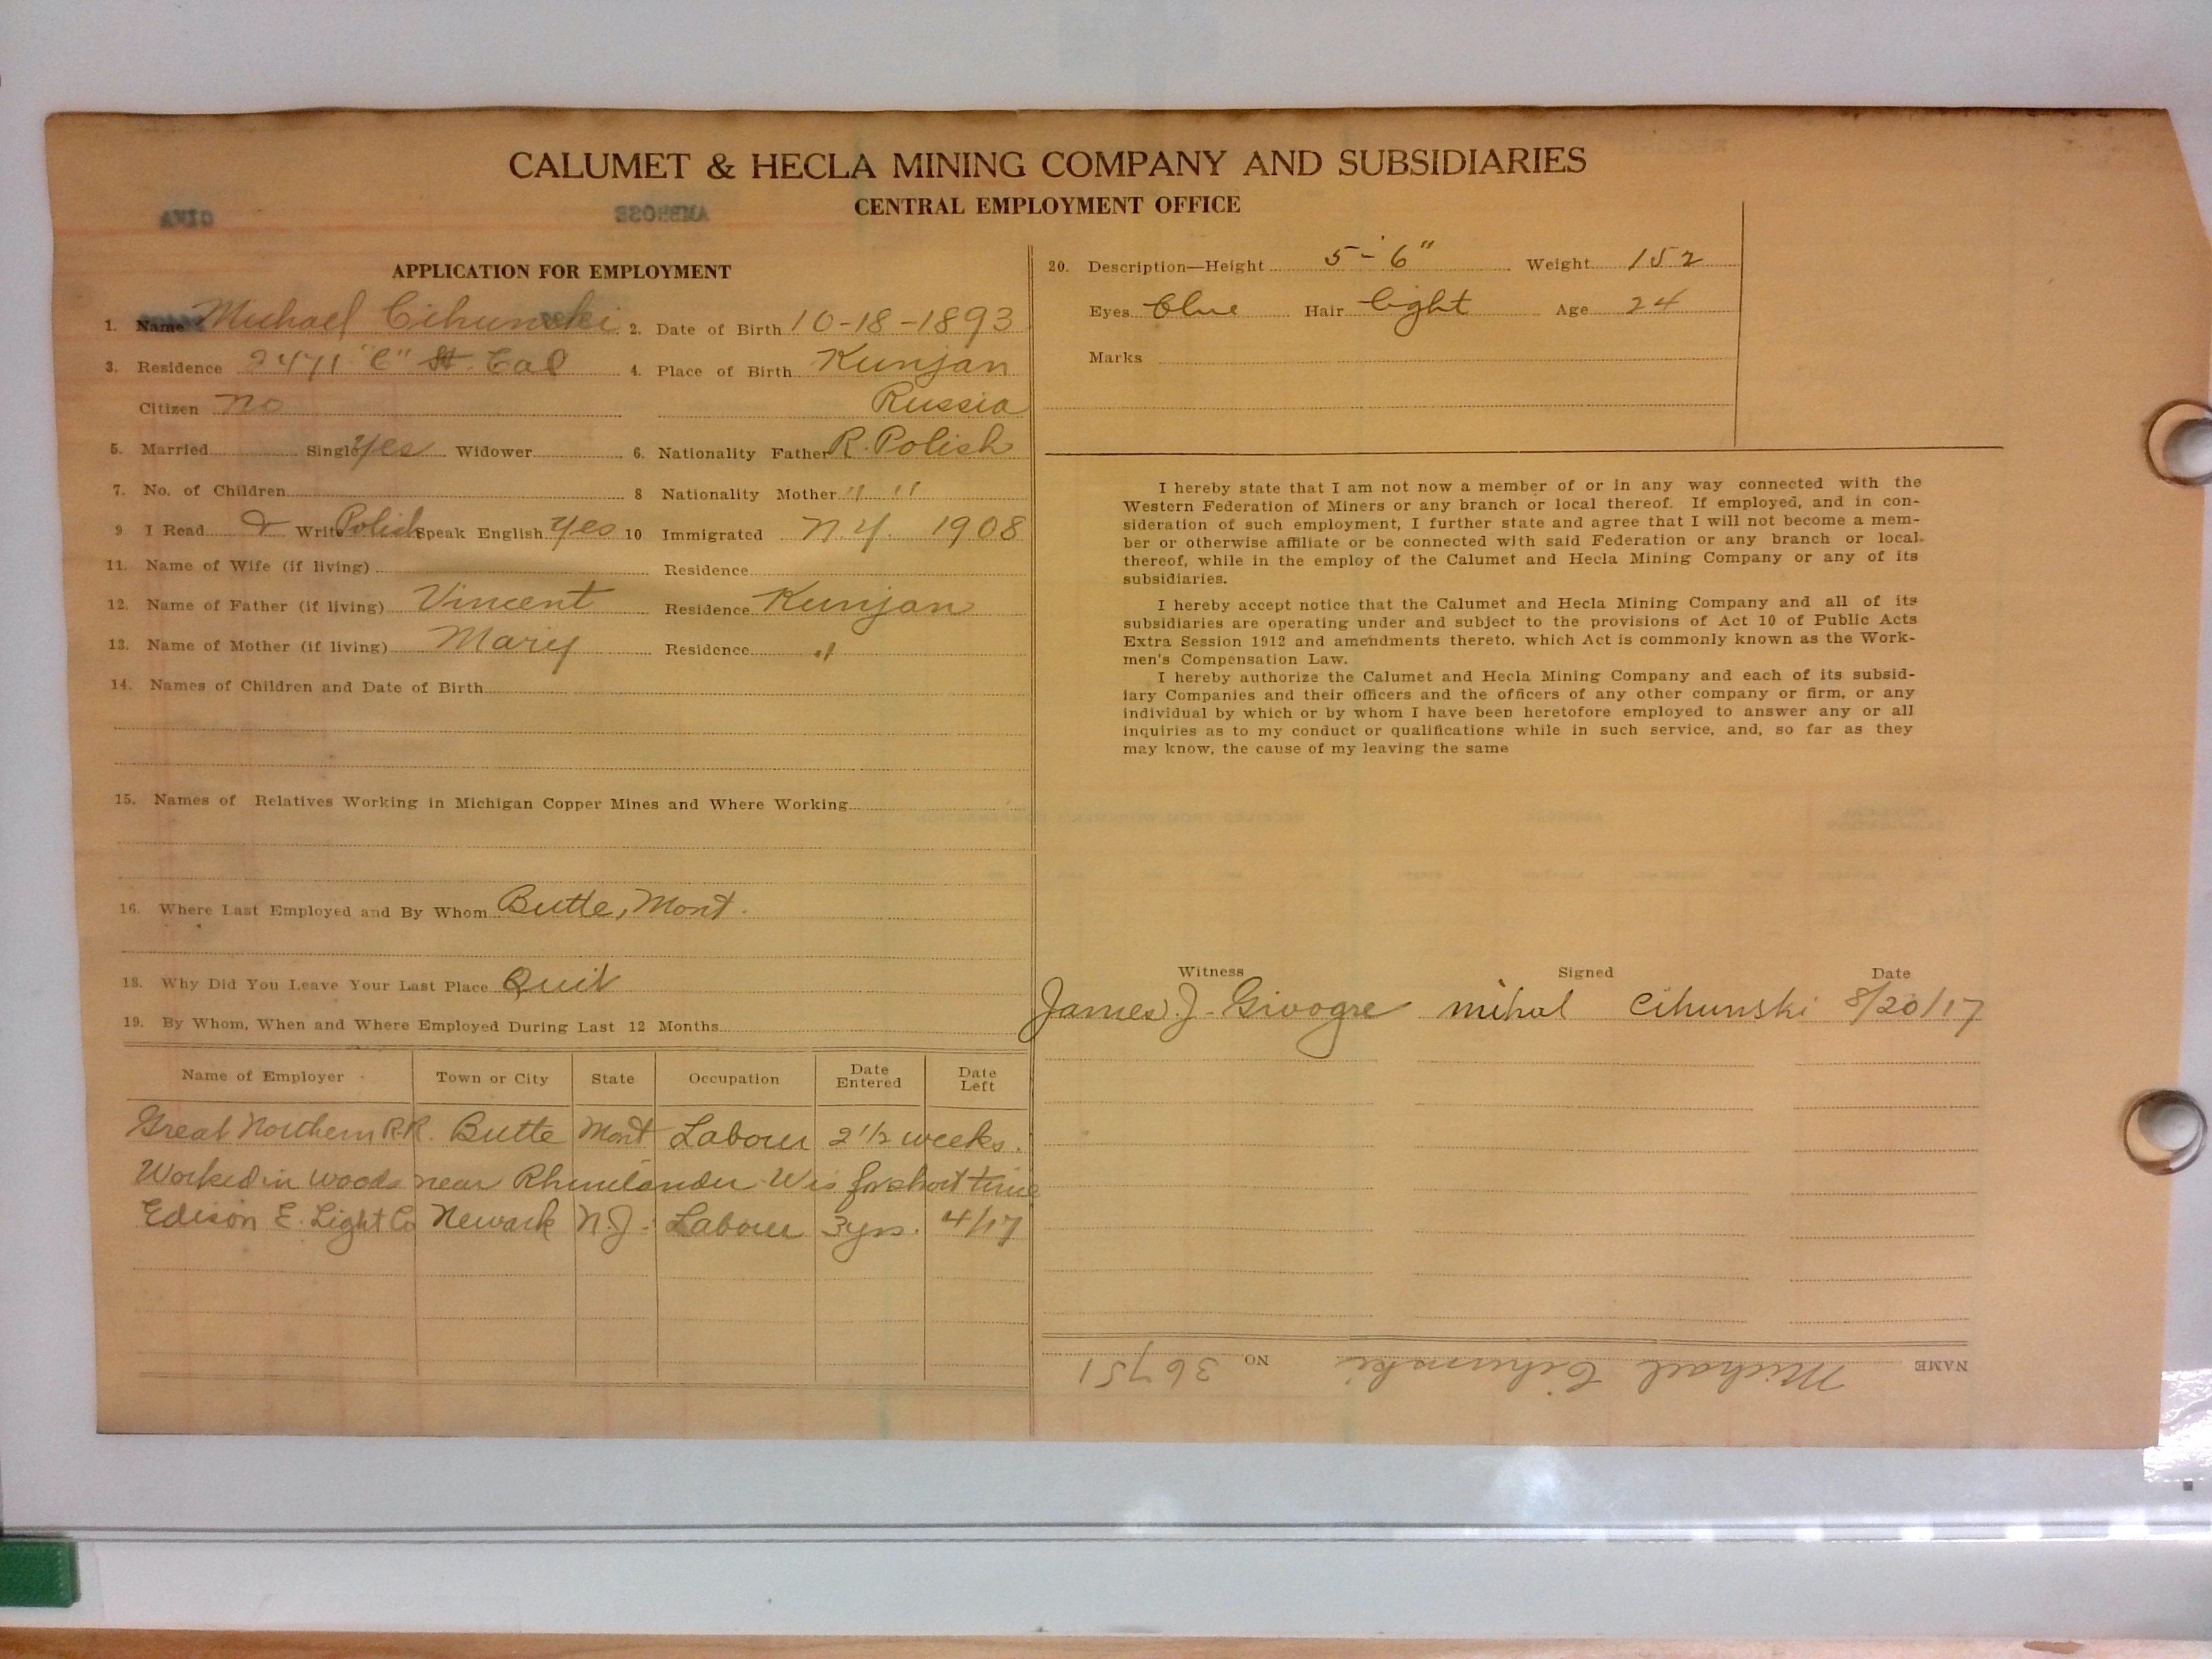 CALUMET & HECLA MINING COMPANY AND SUBSIDIARIES
CENTRAL EMPLOYMENT OFFICE
AMBROSE
APPLICATION FOR EMPLOYMENT
1. Name Michael Cihunski 2. Date of Birth 10-18-1893
3. Residence 2471 "C" St. Cal 4. Place of Birth Kunjan
Citizen no Russia
5. Married Single yes Widower 6. Nationality Father R. Polish
7. No. of Children 8 Nationality Mother " "
9 I Read & Write Polish Speak English yes 10 Immigrated N.Y. 1908
11. Name of Wife (if living) Residence
12. Name of Father (if living) Vincent Residence Kunjan
13. Name of Mother (if living) Mary Residence "
14. Names of Children and Date of Birth
15. Names of Relatives Working in Michigan Copper Mines and Where Working
16. Where Last Employed and By Whom Butte, Mont.
18. Why Did You Leave Your Last Place Quit
19. By Whom, When and Where Employed During Last 12 Months
Name of Employer Town or City State Occupation Date Entered Date Left
Great Northern R.R. Butte Mont Labour 2 1/2 weeks.
Worked in woods near Rhinelander Wis for short time
Edison E. Light Co Newark N.J. Labour 3 yrs. 4/17
20. Description—Height 5-6" Weight 152
Eyes blue Hair light Age 24
Marks
I hereby state that I am not now a member of or in any way connected with the
Western Federation of Miners or any branch or local thereof. If employed, and in con-
sideration of such employment, I further state and agree that I will not become a mem-
ber or otherwise affiliate or be connected with said Federation or any branch or local
thereof, while in the employ of the Calumet and Hecla Mining Company or any of its
subsidiaries.
I hereby accept notice that the Calumet and Hecla Mining Company and all of its
subsidiaries are operating under and subject to the provisions of Act 10 of Public Acts
Extra Session 1912 and amendments thereto, which Act is commonly known as the Work-
men's Compensation Law.
I hereby authorize the Calumet and Hecla Mining Company and each of its subsid-
iary Companies and their officers and the officers of any other company or firm, or any
individual by which or by whom I have been heretofore employed to answer any or all
inquiries as to my conduct or qualifications while in such service, and, so far as they
may know, the cause of my leaving the same
Witness Signed Date
James J. Givogre mihal Cihunski 8/20/17
NAME Michael Cihunski NO 36751